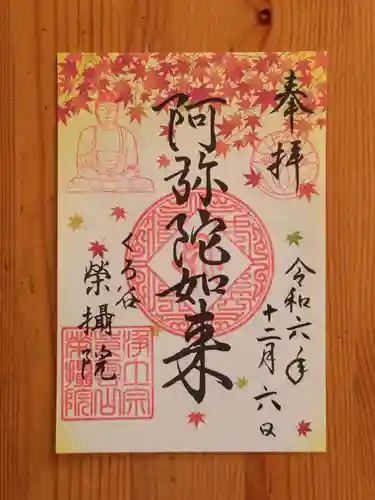 奉拝
令和六年
十二月六日
阿弥陀如来
くろ谷
榮攝院